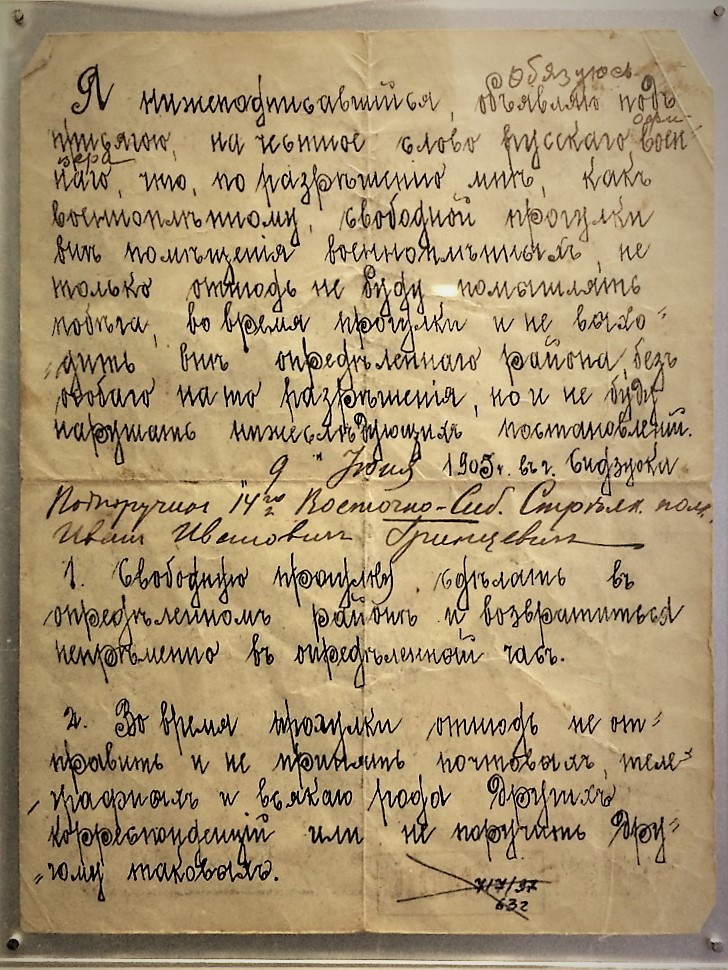 обязуюсь
Я нижеподписавшийся, объявляю подъ
присягою, на честное слово русскаго воен
офи-
цера
наго, что, по разрѣшенію мнѣ, какъ
военноплѣнному, свободной прогулки
внѣ помѣщенія военноплѣнныхъ, не
только отнюдь не буду помышлять
побѣга, во время прогулки и не выхо-
дить внѣ опредѣленнаго района, безъ
особаго на то разрѣшенія, но и не буду
нарушать нижеслѣдующихъ постановленій.
9 " Іюня 1905 г. въ г. Сидзуока
Подпоручикъ 14го Восточно-Сиб. Стрѣлк. полк.
Иванъ Ивановичъ Гринцевичъ
1. Свободную прогулку сдѣлать въ
опредѣленномъ районѣ и возвратиться
непремѣнно въ опредѣленной часъ.
2. Во время прохулки отнюдь не от-
править и не принять почтовыхъ, теле-
графныхъ и всякаго рода другихъ
корреспонденцій или не поручать дру-
гому таковыхъ.
7/7/37
632